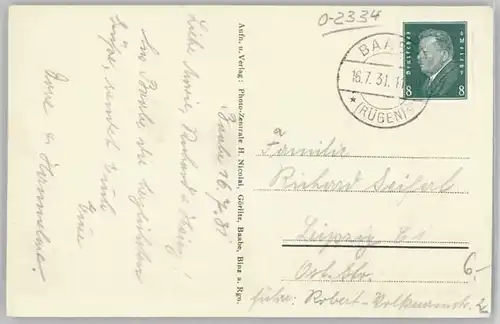 O-2334
BAABE
16.7.31.11
*(RÜGEN)*
Deutsches Reich
8 8
Aufn. u. Verlag: Photo-Zentrale H. Nicolai, Görlitz, Baabe, Binz a. Rgn.
Baabe 16.7.31
Liebe Richard u. Heinz!
Aus Baabe die herzlichsten
Grüße sendet Euch
Eure
Hannelore.
Familie
Richard Seifert
Leipzig
Ost. Str.
früher: Robert-Volkmannstr. 2
6,-